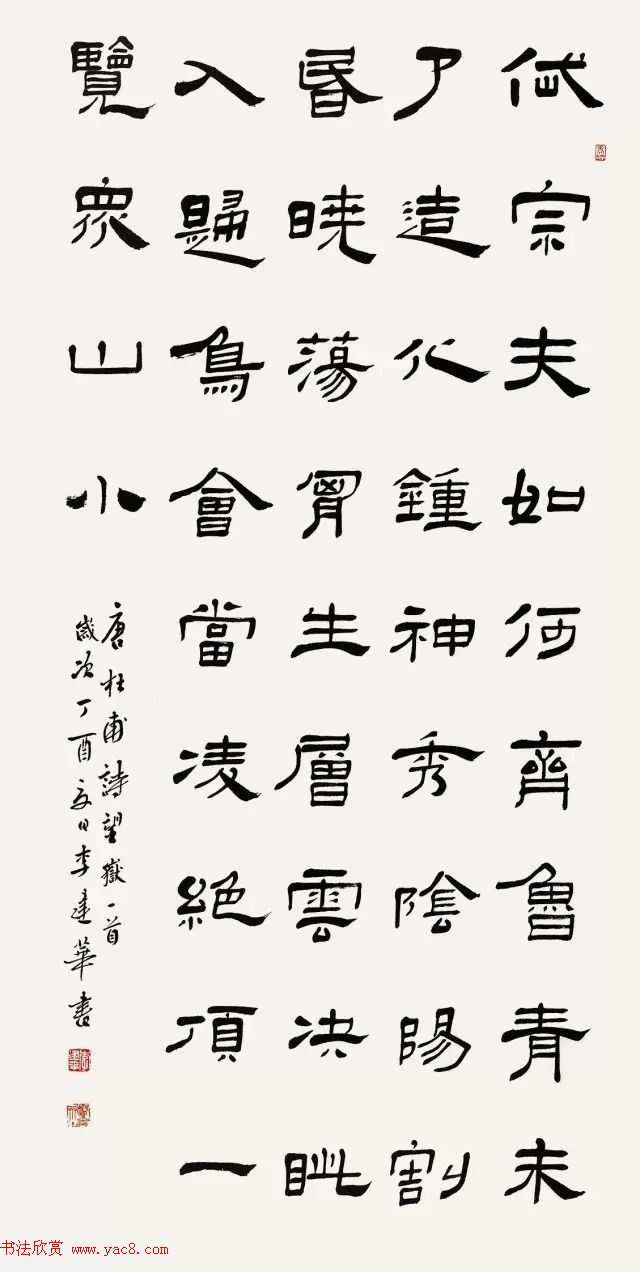 岱宗夫如何齊魯青未
了造化鍾神秀陰陽割
昬曉蕩胷生層雲决眦
入歸鳥會當凌絕頂一
覽眾山小
唐杜甫詩望嶽一首
歲次丁酉夏日李建華書
书法欣赏 www.yac8.com